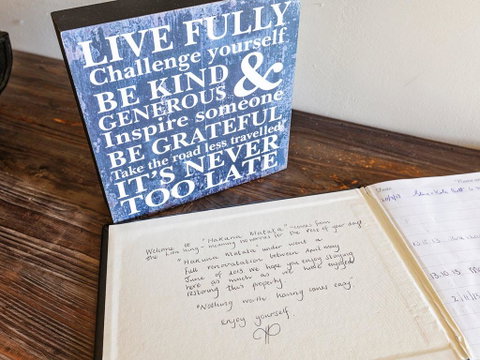 LIVE FULLY
Challenge yourself
BE KIND
GENEROUS &
Inspire someone
BE GRATEFUL
Take the road less travelled
IT'S NEVER
TOO LATE
Welcome to "Hakuna Matata" - comes from
the Lion king - meaning no worries for the rest of your days
"Hakuna Matata under went a
full renovatation between April/May
June of 2013 we hope you enjoy staying
here as much as we have enjoyed
restoring this property.
"Nothing worth having comes easy".
enjoy yourself.
Date